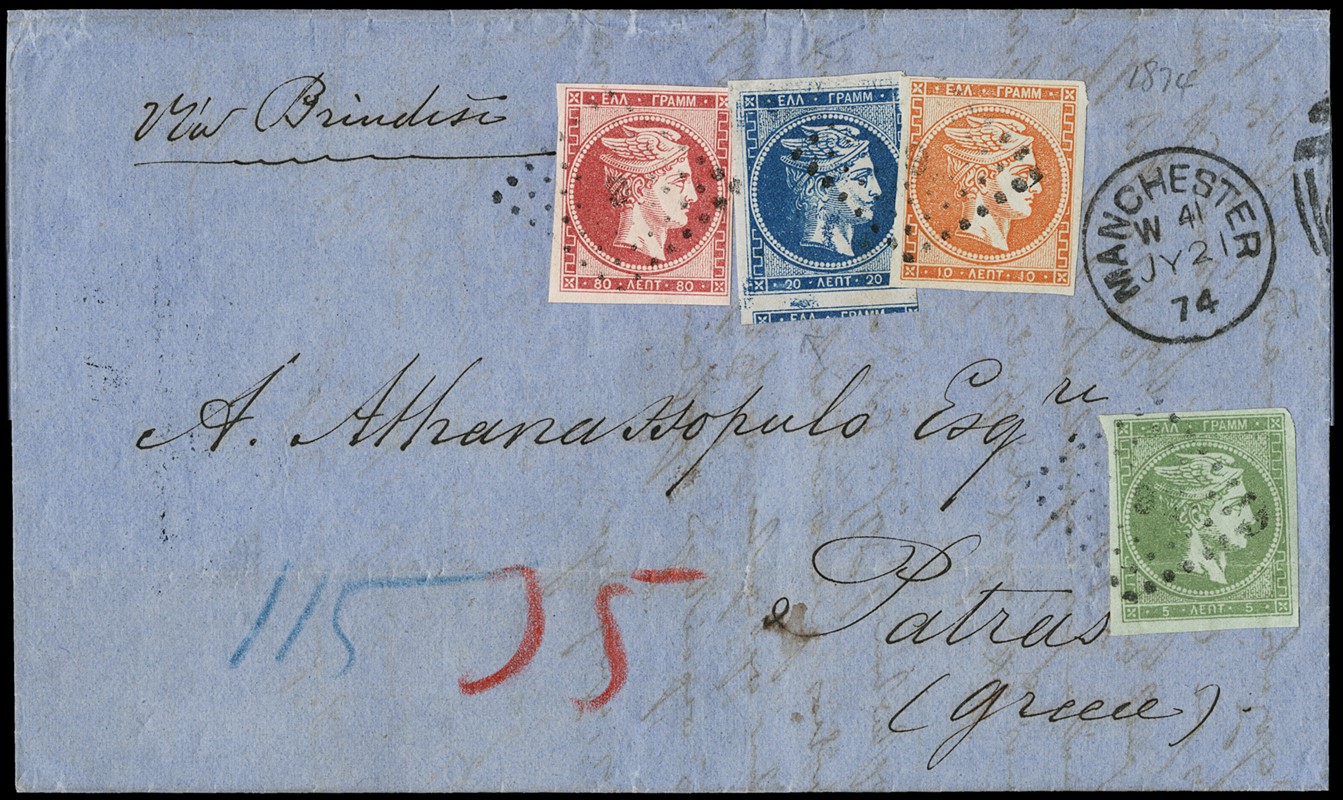 1874
Via Brindisi
ΕΛΛ ΓΡΑΜΜ
80 ΛΕΠΤ 80
ΕΛΛ ΓΡΑΜΜ
20 ΛΕΠΤ 20
ΕΛΛ ΓΡΑΜΜ
ΕΛΛ ΓΡΑΜΜ
10 ΛΕΠΤ 10
MANCHESTER
W 41
JY 21
74
A. Athanassopulo Esqre.
ΕΛΛ ΓΡΑΜΜ
5 ΛΕΠΤ 5
Patras
(Greece).
115